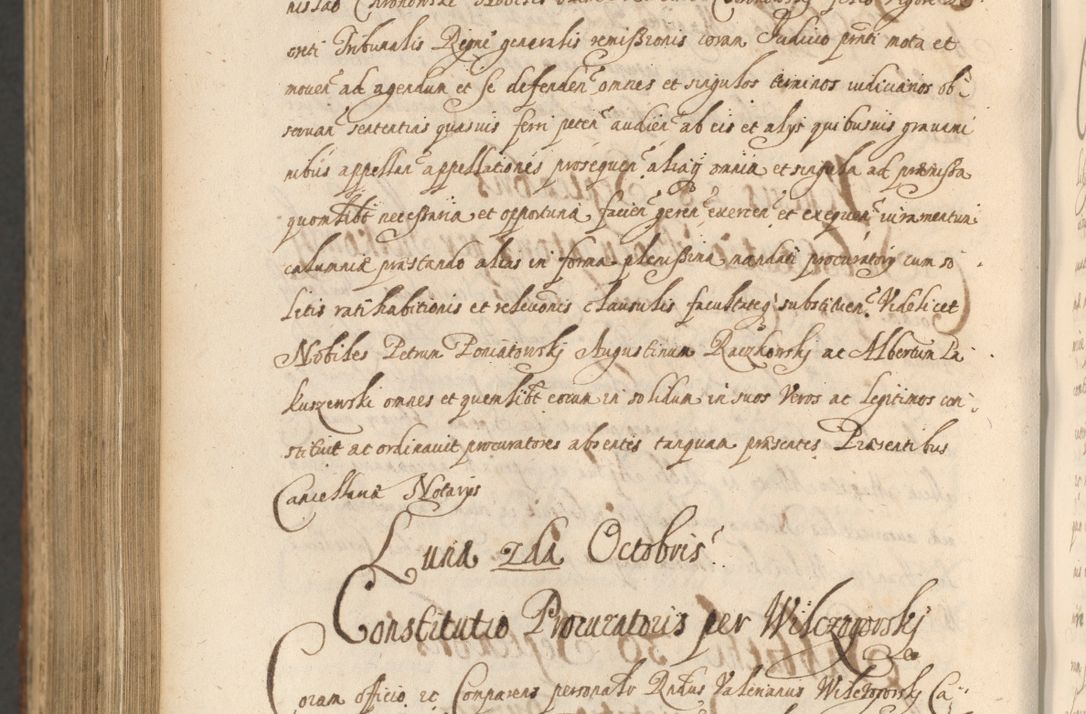 nislao Chronowski Nobiles
creti Tribunalis Regni generalis remissionis coram Iudicio pñti mota et
mouen̄ ad agendum et se defenden̄ omnes et singulos terminos iudiciarios ob-
seruan̄ sententias quasuis ferri peten̄ audien̄ ab eis et alÿs quibusuis grauami
nibus appellan̄ appellationes prosequen̄ aliaq̃ omnia et singula ad præmissa
quomlibt necessaria et opportuna facien̄ geren̄ exercen̄ et exequen̄ iuramentum
calumniæ præstando alias in forma plenissima mandati procuratorÿ cum so
litis ratihabitionis et releuõnis clausulis facultateq̃ substituen̄ Videlicet
Nobiles Petrum Poniatowskj Augustinum Raczkowskj ac Albertum La
kuszewski omnes et quemlibt eorum in solidum in suos Veros ac legitimos con-
stituit ac ordinauit procuratores absentes tanquam præsentes Præsentibus
Cancellariæ Notarÿs
Luna 2da Octobris
Constitutio Procuratoris per Wilczogorskj
Coram officio et Comparens personalr̃ Rñdus Valerianus Wilczogorskj Ca-